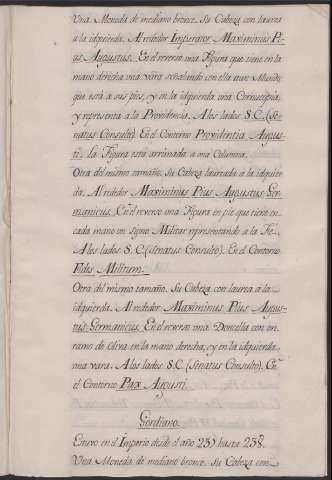 Una Moneda de mediano bronce. Su Cabeza con laurea
a la idquierda. Al rededor Imperator Maximinus Pi-
us Augustus. En el reverso una Figura que tiene en la
mano derecha una vara señalando con ella un Mundo
que está a sus pies, y en la idquierda una Cornucopia,
y representa a la Providencia. A los lados S. C. (Se-
natus Consulto) En el Contorno Providentia Augus-
ti. la Figura está arrimada a una Columna.
Otra del mismo tamaño. Su Cabeza laureada a la idquier-
da. Al rededor Maximinus Pius Augustus Ger-
manicus. En el reverso una Figura en pie que tiene en
cada mano un signo Militar representando a la Fe.
A los lados S. C. (Senatus Consulto). En el Contorno
Fides Militum.
Otra del mismo tamaño. Su Cabeza con laurea a la
idquierda. Al rededor Maximinus Pius Augus-
tus Germanicus. En el reverso una Doncella con un
ramo de Oliva en la mano derecha, y en la idquierda
una vara. A los lados S. C. (Senatus Consulto). En
el Contorno Pax Augusti.
Gordiano.
Estuvo en el Imperio desde el año 237 hasta 238.
Una Moneda de mediano bronce. Su Cabeza con